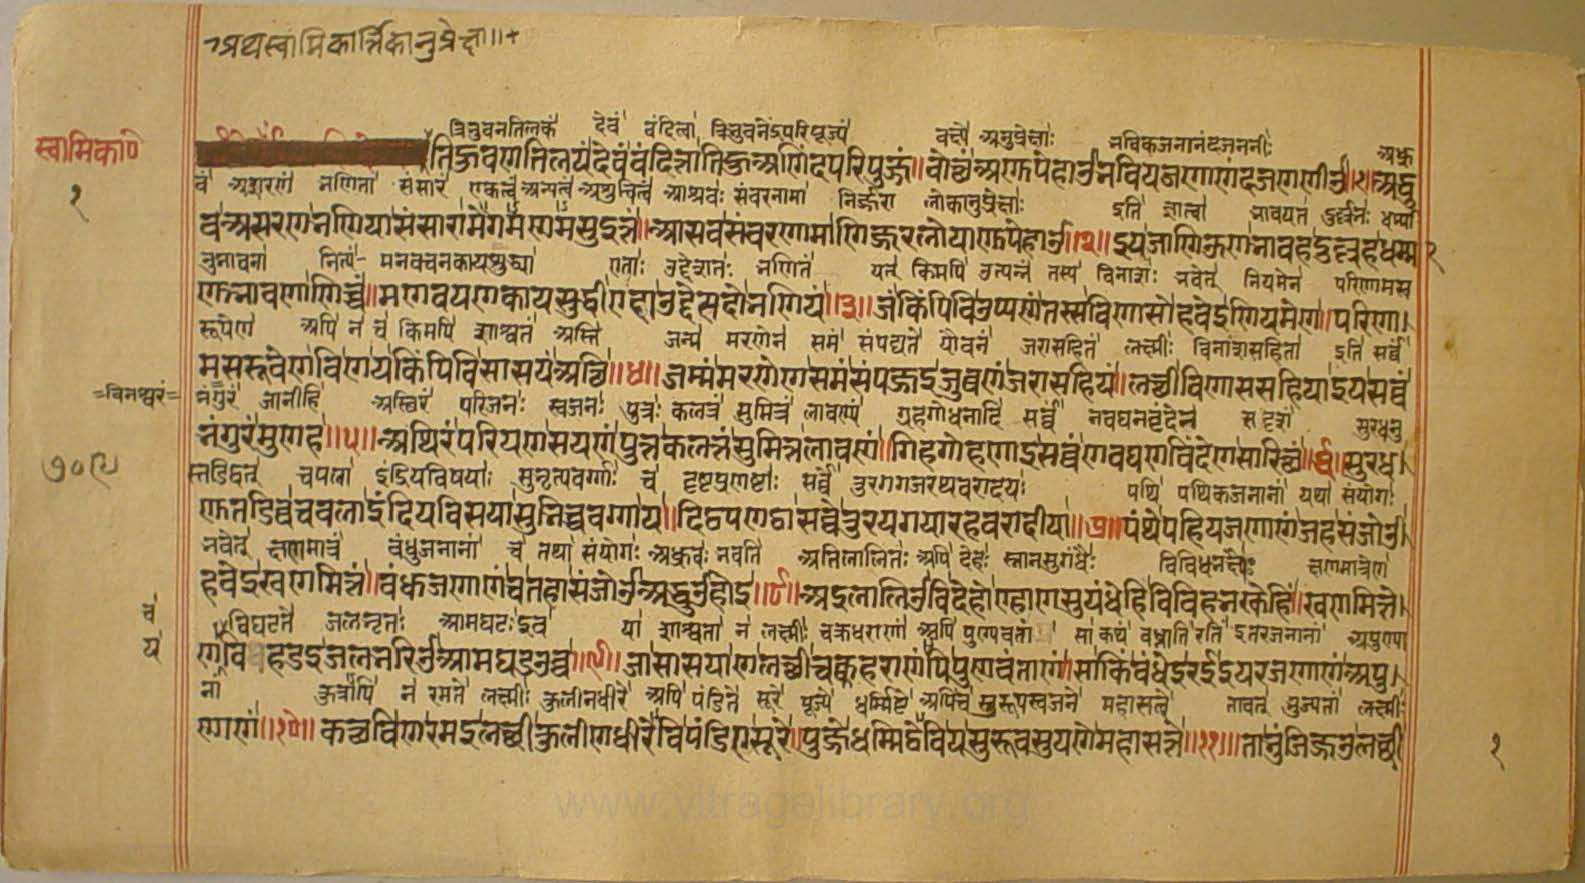 अथस्वामिकार्त्तिकानुप्रेक्षा॥+
त्रिभुवनतिलकं देवं वंदित्वा त्रिभुवनेंद्रपरिपूज्यं वक्ष्ये अनुप्रेक्षाः भविकजनानंदजननीः अध्रु
स्वामिका०
तिहुवणतिलयंदेवंवंदित्तातिहुअणिंदपरिपुज्जं॥वोछंअणुपेहाउभवियजणाणंदजणणीउ॥१॥अद्धु
१
वं अशरणं भणिता संसारं एकत्वं अन्यत्वं अशुचित्वं आश्रवः संवरनामा निर्ज्जरा लोकानुप्रेक्षाः इति ज्ञात्वा भावयत दुर्ल्लभः धर्म्मा
वअसरणभणियासंसारामेगमणमसुइत्तं॥आसवसंवरणामाणिज्जरलोयाणुपेहाउ॥२॥इयजाणिऊणभावहदुल्लहधम्मा
नुभावना नित्यं मनवचनकायशुध्या एताः उद्देशतः भणितं यत् किमपि उत्पन्नं तस्य विनाशः भवेत् नियमेन परिणामस्व
णुभावणाणिच्चं॥मणवयणकायसुद्धीएहाउद्देसदोभणियं॥३॥जंकिंपिविउप्पणंतस्सविणासोहवेइणियमेण॥परिणा।
रूपेण अपि न च किमपि शाश्वतं अस्ति जन्म मरणेन समं संपद्यते यौवनं जरासहितं लक्ष्मीः विनाशसहिता इति सर्व्वं
मसरूवेणविणयकिंपिविसासयंअत्थि॥४॥जम्मंमरणेणसमंसंपज्जइजुव्वणंजरासहियं॥लछीविणाससहियाइयसव्वं
=विनश्वरं=
भंगुरं जानीहि अस्थिरं परिजनः स्वजनः पुत्रः कलत्रं सुमित्रं लावण्यं गृहगोधनादि सर्व्वं नवघनवृंदेन सदृशं सुरधनु
भंगुरंमुणह॥५॥अथिरंपरियणसयणंपुत्तकलत्तंसुमित्तलावणं॥गिहगोहणाइसव्वंणवघणविंदेणसारिछं॥६॥सुरध।
७०९
स्तडिद्वत् चपला इंद्रियविषयाः सुभृत्यवर्गाः च दृष्टप्रणष्टाः सर्वे तुरगगजरथवरादयः पथि पथिकजनानां यथा संयोगः
णुतडिव्वचवलाइंदियविसयासुभिच्चवग्गाय॥दिट्ठपणट्ठासव्वेतुरयगयारहवरादीया॥७॥पंथेपहियजणाणंजहसंजोउ
भवेत् क्षणमात्रं बंधुजनानां च तथा संयोगः अध्रुवः भवति अतिलालितः अपि देहः स्नानसुगंधैः विविधभक्षैः क्षणमात्रेण
हवेइखणमित्तं॥बंधुजणाणंचतहासंजोउअद्धुउहोइ॥८॥अइलालिउविदेहोण्हाणसुयंधेहिंविविहभरकेहिं॥खणमित्ते।
च
विघटते जलभृतः आमघटःइव या शाश्वता न लक्ष्मीः चक्रधराणां अपि पुण्यवतां सा कथं बध्नाति रतिं इतरजनानां अपुण्या
य
णविहडइजलभरिउआमघडउव्व॥९॥जासासयाणलछीचक्कहराणंपिपुणवंताणं॥साकिंबंधेइरइंइयरजणाणंअपु।
नां कुत्रापि न रमते लक्ष्मीः कुलीनधीरे अपि पंडिते सूरे पूज्ये धर्म्मिष्टे अपिच सुरूपस्वजने महासत्वे तावत् भुज्यतां लक्ष्मीः
ण्णाणं॥१०॥कछविणरमइलछीकुलीणधीरेविपंडिएसूरे॥पुज्जेधम्मिट्ठेवियसुरूवसुयणेमहासत्ते॥११॥ताभुंजिज्जउलछी
१
www.vitragelibrary.org